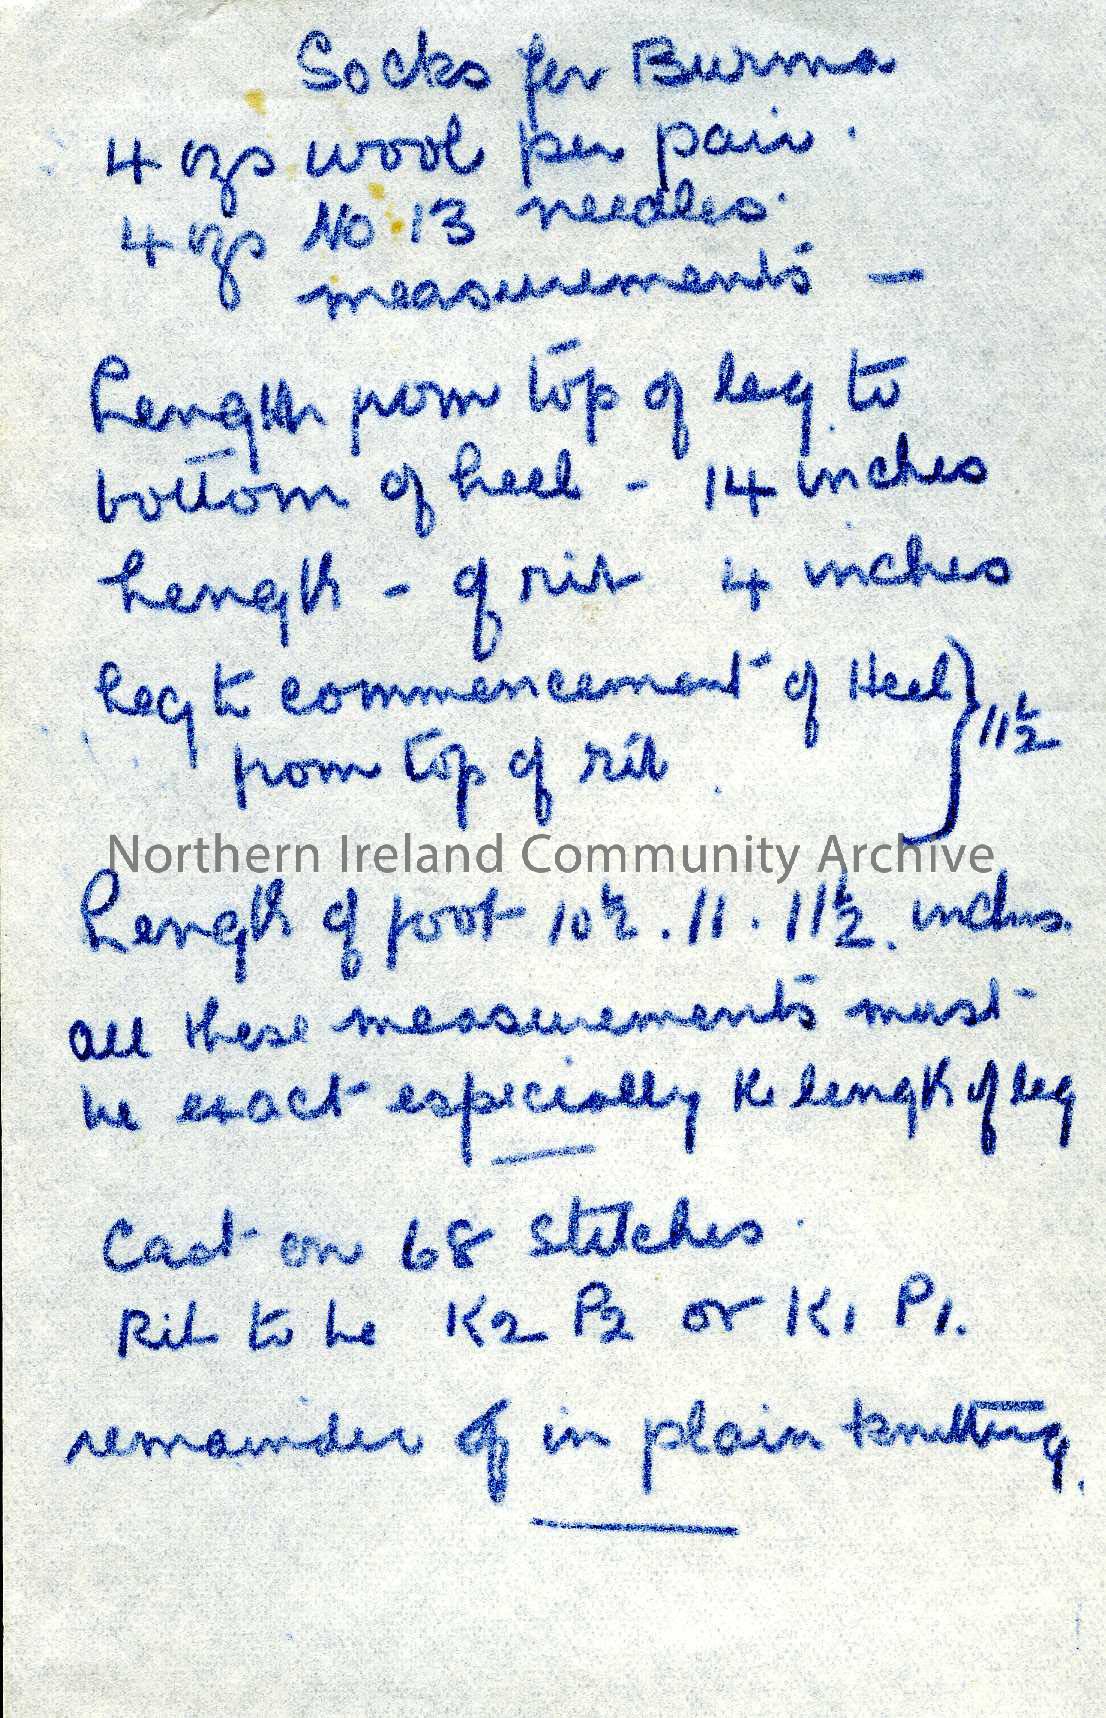 Socks for Burma
4 ozs wool per pair.
4 ozs No 13 needles.
measurements —
Length from top of leg to
bottom of heel - 14 inches
Length - of rib 4 inches
Leg to commencement of Heel } 11½
from top of rib
Northern Ireland Community Archive
Length of foot 10½. 11. 11½. inches.
all these measurements must
be exact especially the length of leg
Cast on 68 stitches.
Rib to be K2 P2 or K1 P1.
remainder of in plain knitting.